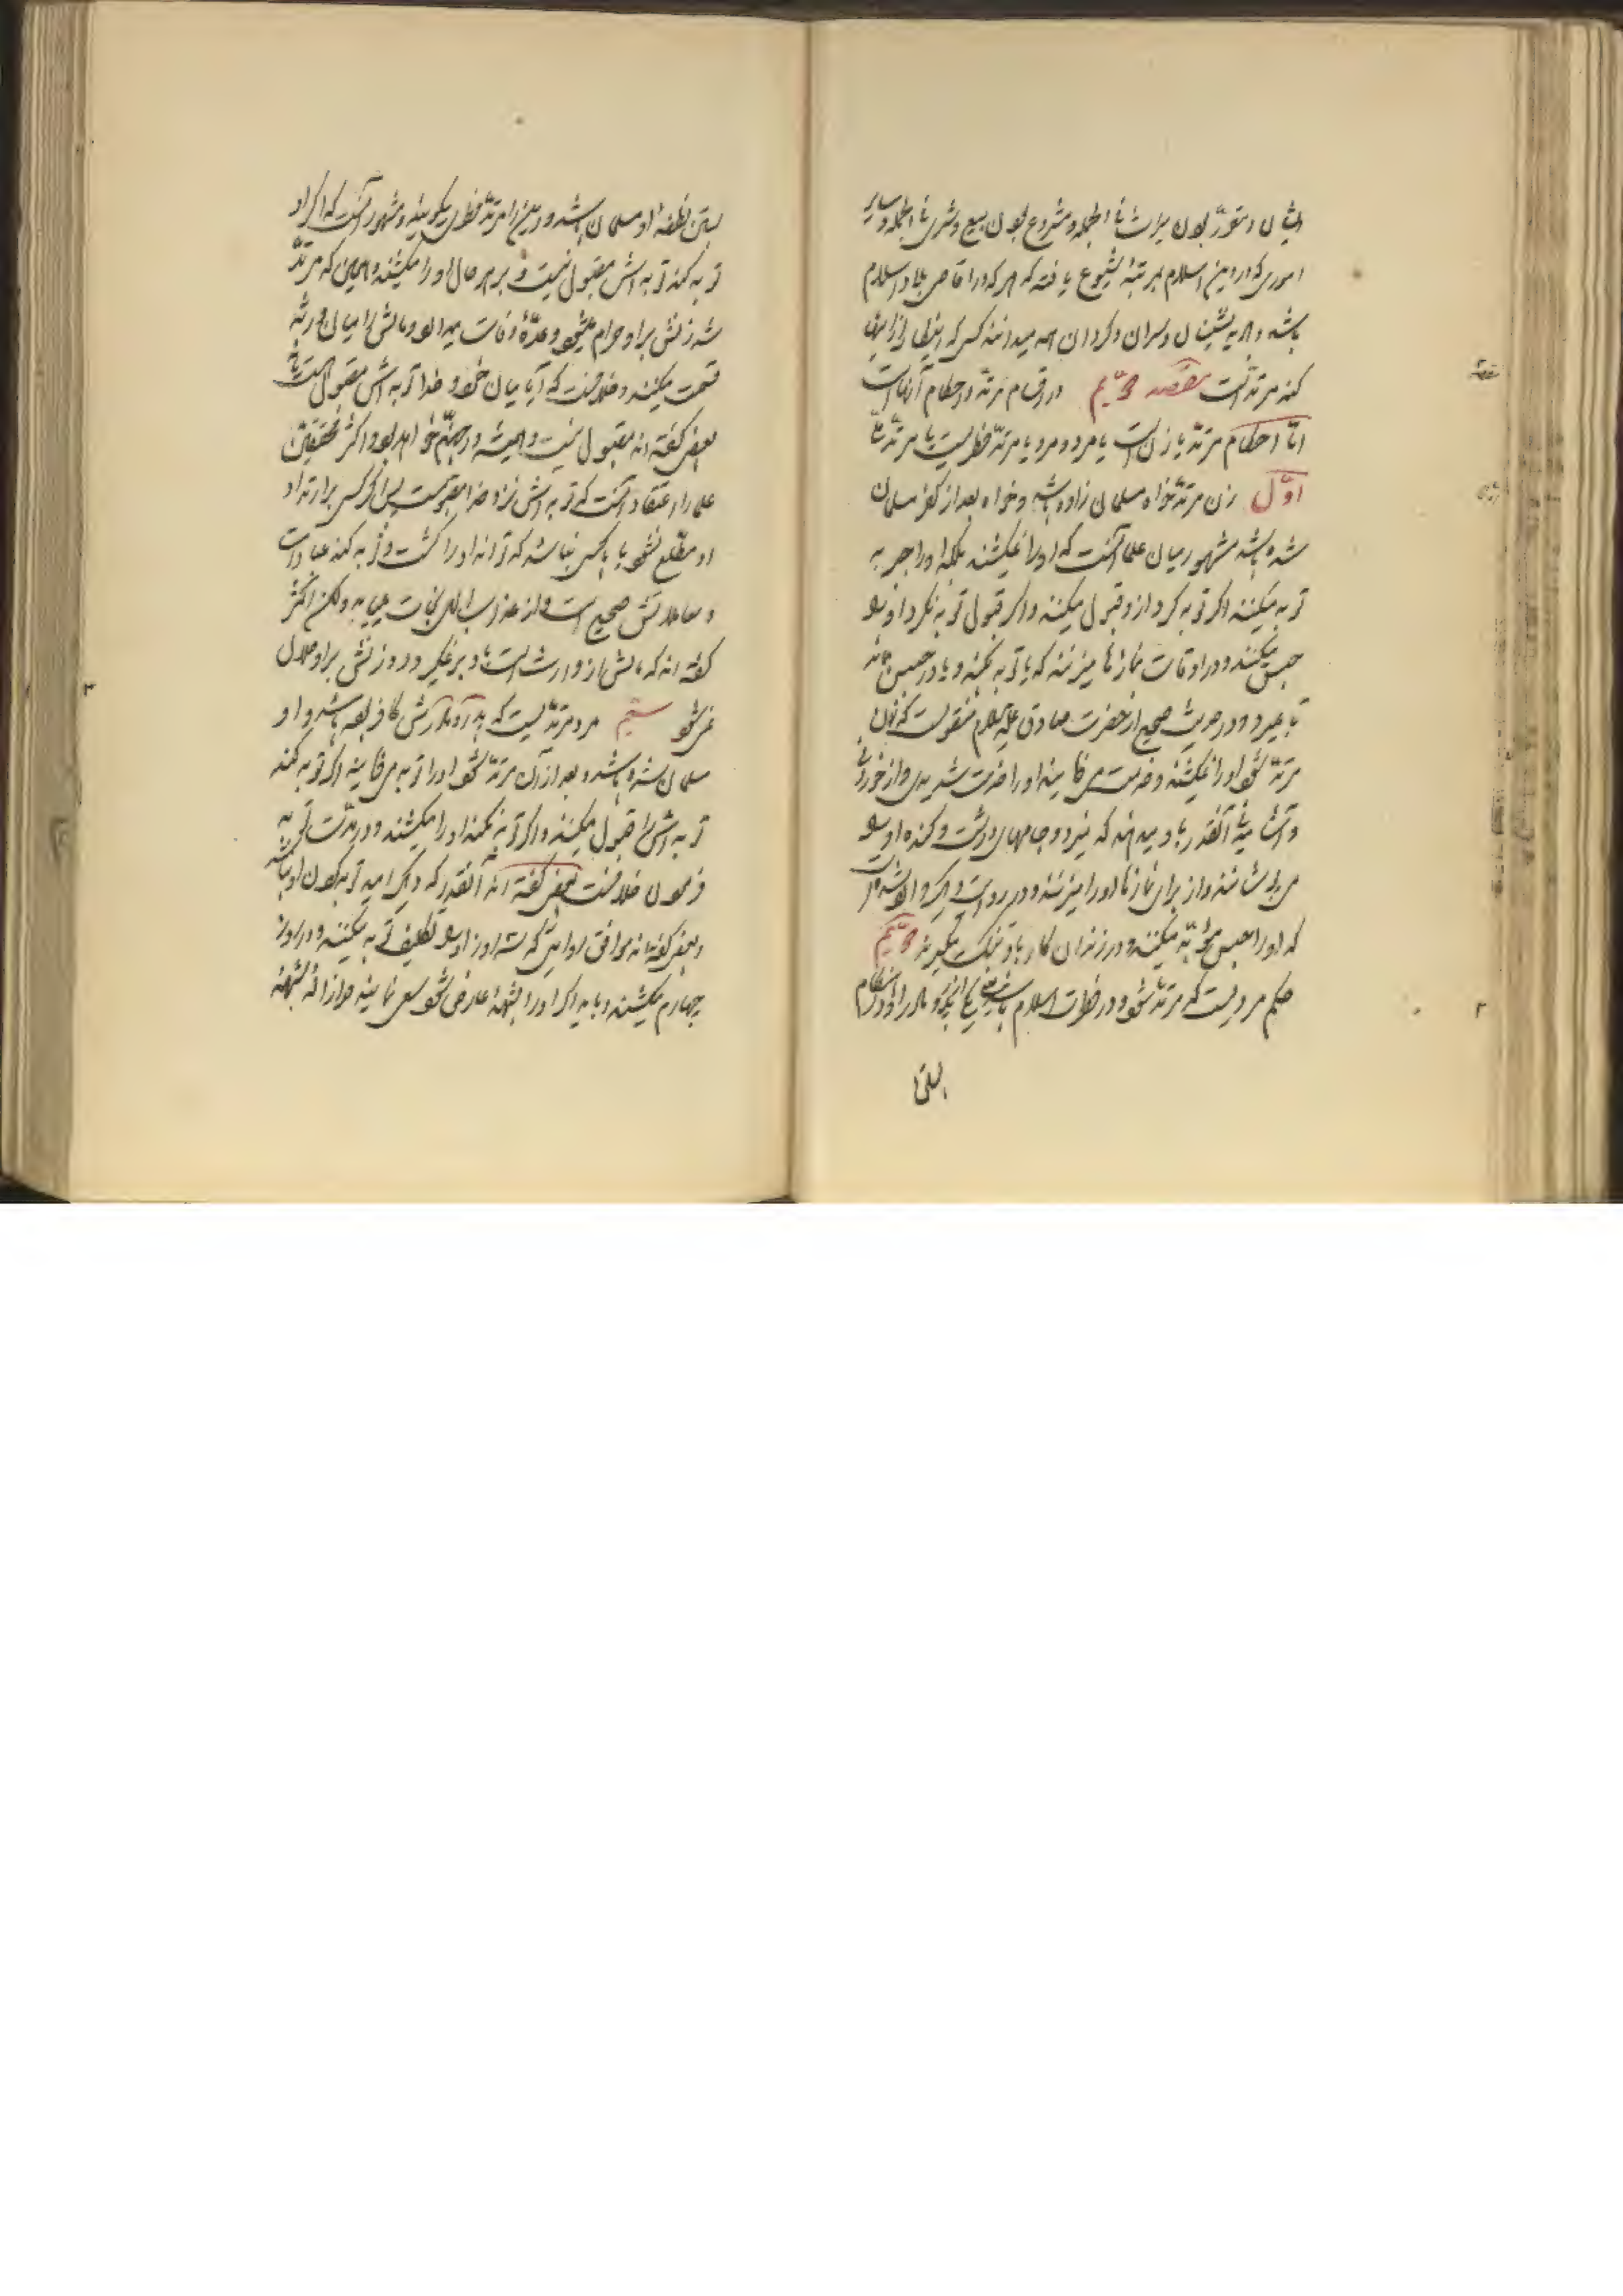 ایشان و مقرر بودن میراث فی الجمله و مشروع بودن بیع و شری فی الجمله و سایر
اموری که در دین اسلام بمرتبهٔ شیوع یافته که هر که در اقاصی بلاد اسلام
باشد و بادیه نشینان و لران و کردان همه میدانند کسی که انکار یکی از اینها
کند مرتد است مقصد دویم در اقسام مرتد و احکام آنهاست
اما احکام مرتد یا زن است یا مرد و مرد یا مرتد فطریست یا مرتد ملی
اول زن مرتد خواه مسلمان زاده باشد و خواه بعد از کفر مسلمان
شده باشد مشهور میان علما آنست که او را نمیکشند بلکه او را جبر به
توبه میکنند اگر توبه کرد از او قبول میکنند و اگر قبول توبه نکرد او را
حبس میکنند و در اوقات نمازها میزنند که یا توبه بکند و یا در حبس بماند
تا بمیرد و در حدیث صحیح از حضرت صادق علیه السلام منقولست که زن
مرتد شود او را نمیکشند و خدمت میفرمایند او را خدمت شدیدی و از خوردنی
و آشامیدنی آنقدر باو میدهند که نمیرد و جامهای درشت و کنده او را
می پوشانند و از برای نمازها او را میزنند و در روایت دیگر وارد شده است
که او را حبس مؤبد میکنند و در زندان کار باو تنگ میگیرند دویم
حکم مردیست که مرتد شود و در فطرت اسلام باشد یعنی یکی از پدر و مادر او در هنگام
بستن
بستن نطفهٔ او مسلمان باشد و این را مرتد فطری میگویند و مشهور آنست که اگر او
توبه کند توبه اش مقبول نیست و بر هر حال او را میکشند و همین که مرتد
شد زنش بر او حرام میشود و عدهٔ وفات میدارد و مالش را میان ورثه
قسمت میکنند و خلافست که آیا میان خود و خدا توبه اش مقبول است یا نه
بعضی گفته اند مقبول نیست و همیشه در جهنم خواهد بود و اکثر محققین
علما را اعتقاد آنست که توبه اش نزد خدا مقبولست پس اگر کسی بر ارتداد
او مطلع نشود یا کسی نباشد که تواند او را کشت و توبه کند عبادات
و معاملاتش صحیح است و از عذاب الهی نجات مییابد ولیکن اکثر
گفته اند که مالش از وارث است باو بر نمیگردد و زنش بر او حلال
نمیشود سیم مرد مرتدیست که پدر و مادرش کافر بوده باشد و او
مسلمان شده باشد و بعد از آن مرتد شود او را توبه میفرمایند اگر توبه کند
توبه اش را قبول میکنند و اگر توبه نکند او را میکشند و در مدت توبه
فرمودن خلافست بعضی گفته اند آنقدر که دیگر امید توبه کردن او باشد
و بعضی گفته اند موافق روایتی که سه روز او را تکلیف توبه میکنند و در روز
چهارم میکشند و باید اگر او را شبههٔ عارض شود سعی نمایند در ازالهٔ شبههٔ